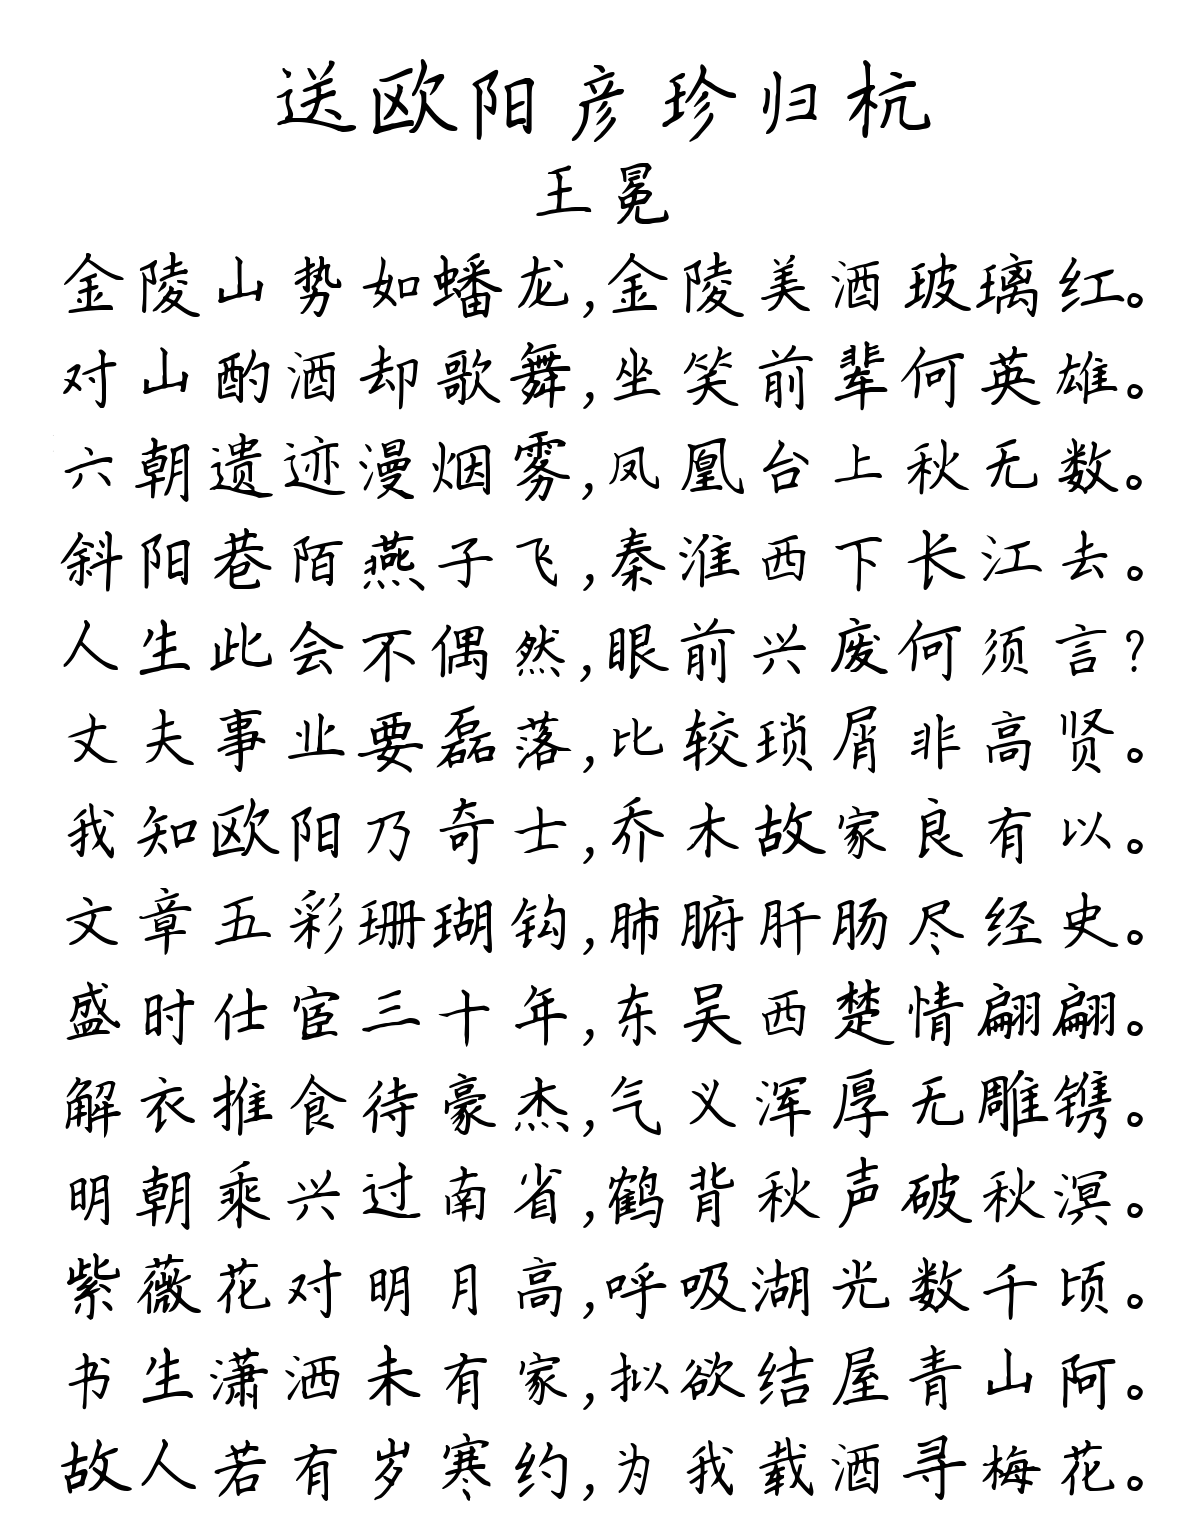 送欧阳彦珍归杭
王冕
金陵山势如蟠龙,金陵美酒玻璃红。
对山酌酒却歌舞,坐笑前辈何英雄。
六朝遗迹漫烟雾,凤凰台上秋无数。
斜阳巷陌燕子飞,秦淮西下长江去。
人生此会不偶然,眼前兴废何须言?
丈夫事业要磊落,比较琐屑非高贤。
我知欧阳乃奇士,乔木故家良有以。
文章五彩珊瑚钩,肺腑肝肠尽经史。
盛时仕宦三十年,东吴西楚情翩翩。
解衣推食待豪杰,气义浑厚无雕镌。
明朝乘兴过南省,鹤背秋声破秋溟。
紫薇花对明月高,呼吸湖光数千顷。
书生潇洒未有家,拟欲结屋青山阿。
故人若有岁寒约,为我载酒寻梅花。